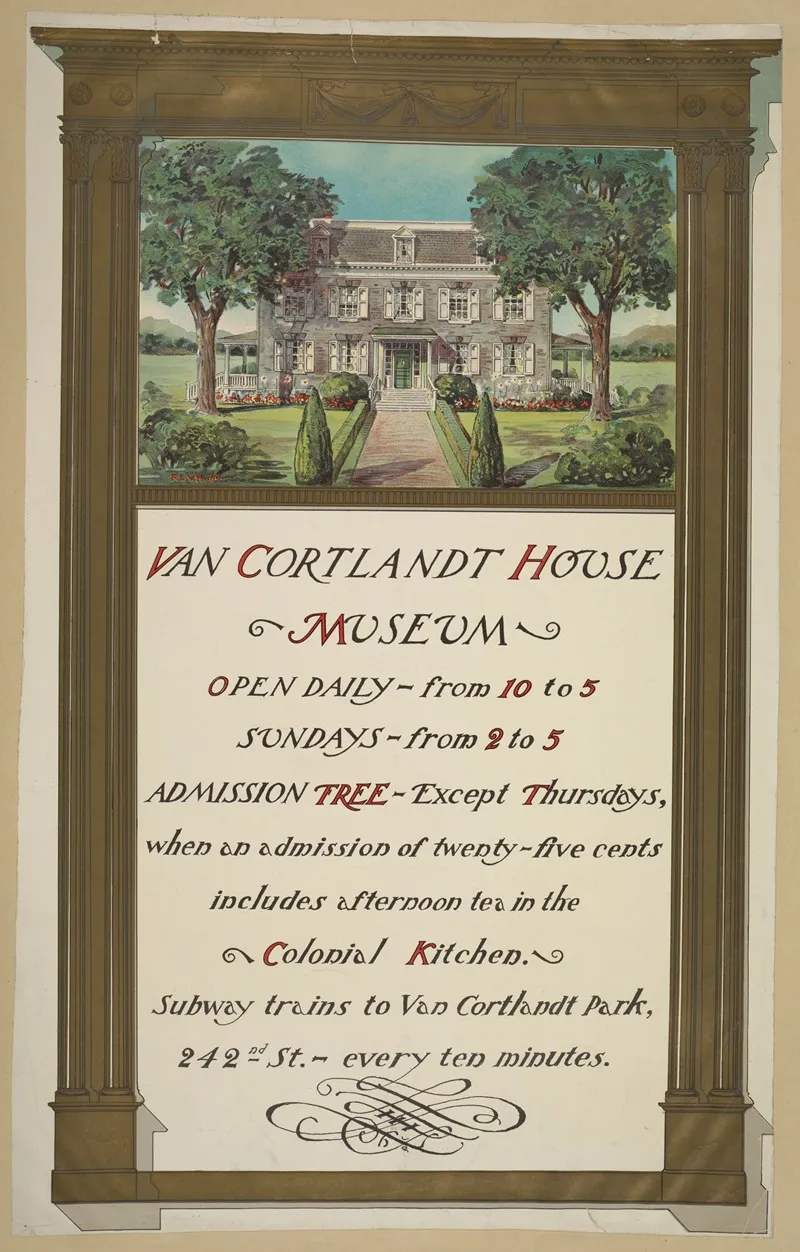 VAN CORTLANDT HOUSE
MUSEUM
OPEN DAILY - from 10 to 5
SUNDAYS - from 2 to 5
ADMISSION FREE - Except Thursdays,
when an admission of twenty-five cents
includes afternoon tea in the
Colonial Kitchen.
Subway trains to Van Cortlandt Park,
242nd St. - every ten minutes.